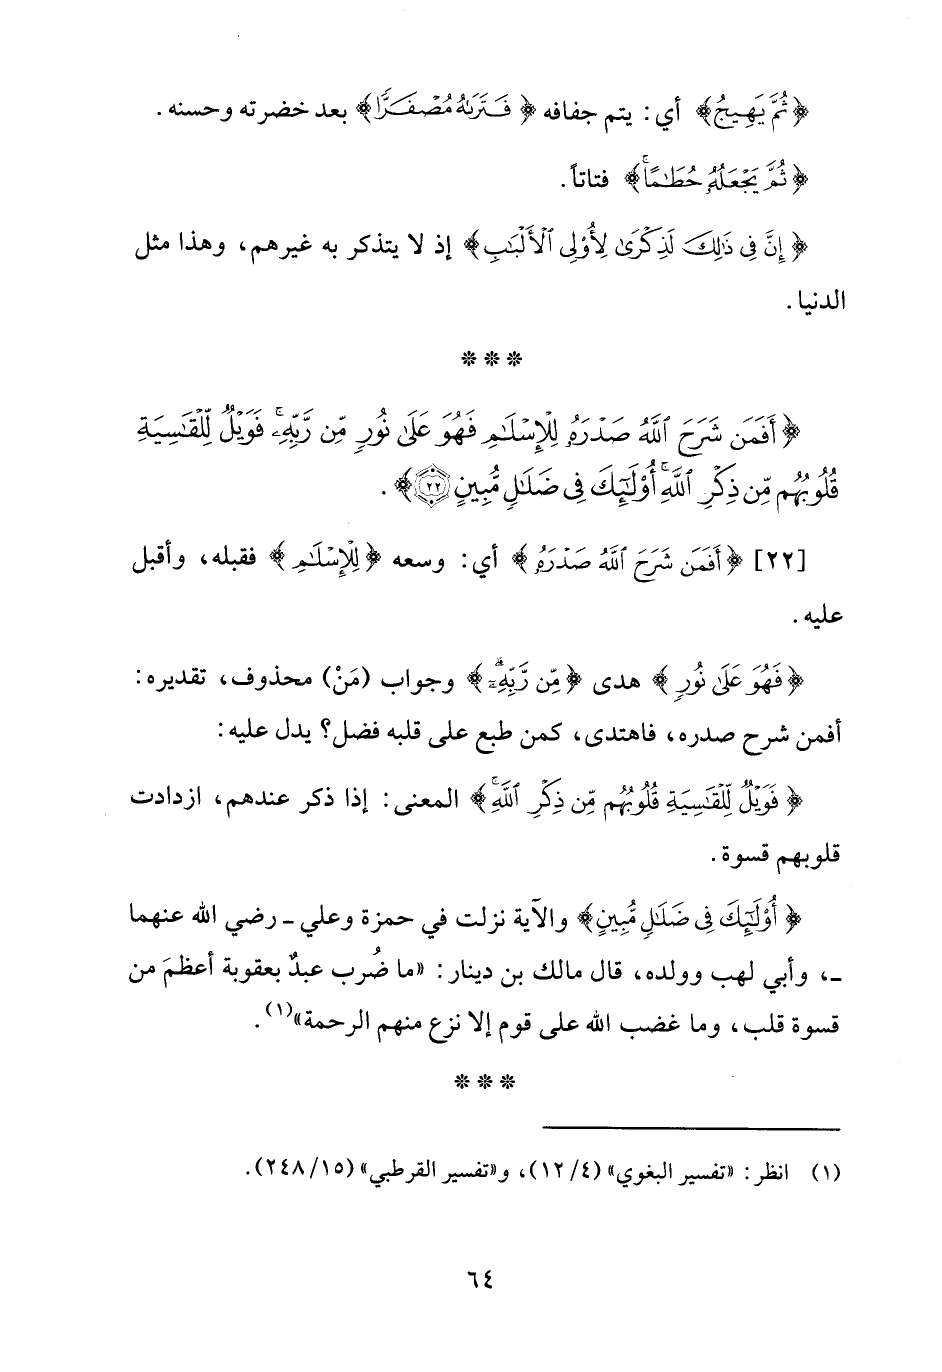 ﴿ثُمَّ يَهِيجُ﴾ أي: يتم جفافه ﴿فَتَرَىٰهُ مُصْفَرًّا﴾ بعد خضرته وحسنه.
﴿ثُمَّ يَجْعَلُهُۥ حُطَٰمًا ۚ﴾ فتاتاً.
﴿إِنَّ فِى ذَٰلِكَ لَذِكْرَىٰ لِأُو۟لِى ٱلْأَلْبَٰبِ﴾ إذ لا يتذكر به غيرهم، وهذا مثل
الدنيا.
***
﴿أَفَمَن شَرَحَ ٱللَّهُ صَدْرَهُۥ لِلْإِسْلَٰمِ فَهُوَ عَلَىٰ نُورٍ مِّن رَّبِّهِۦ ۚ فَوَيْلٌ لِّلْقَٰسِيَةِ
قُلُوبُهُم مِّن ذِكْرِ ٱللَّهِ ۚ أُو۟لَٰٓئِكَ فِى ضَلَٰلٍ مُّبِينٍ ۝٢٢﴾.
[٢٢] ﴿أَفَمَن شَرَحَ ٱللَّهُ صَدْرَهُۥ﴾ أي: وسعه ﴿لِلْإِسْلَٰمِ﴾ فقبله، وأقبل
عليه.
﴿فَهُوَ عَلَىٰ نُورٍ﴾ هدى ﴿مِّن رَّبِّهِۦ ۚ﴾ وجواب (مَنْ) محذوف، تقديره:
أفمن شرح صدره، فاهتدى، كمن طبع على قلبه فضل؟ يدل عليه:
﴿فَوَيْلٌ لِّلْقَٰسِيَةِ قُلُوبُهُم مِّن ذِكْرِ ٱللَّهِ ۚ﴾ المعنى: إذا ذكر عندهم، ازدادت
قلوبهم قسوة.
﴿أُو۟لَٰٓئِكَ فِى ضَلَٰلٍ مُّبِينٍ﴾ والآية نزلت في حمزة وعلي ـ رضي الله عنهما
ـ، وأبي لهب وولده، قال مالك بن دينار: «ما ضُرب عبدٌ بعقوبة أعظمَ من
قسوة قلب، وما غضب الله على قوم إلا نزع منهم الرحمة»(١).
***
(١) انظر: «تفسير البغوي» (٤/ ١٢)، و«تفسير القرطبي» (١٥/ ٢٤٨).
٦٤